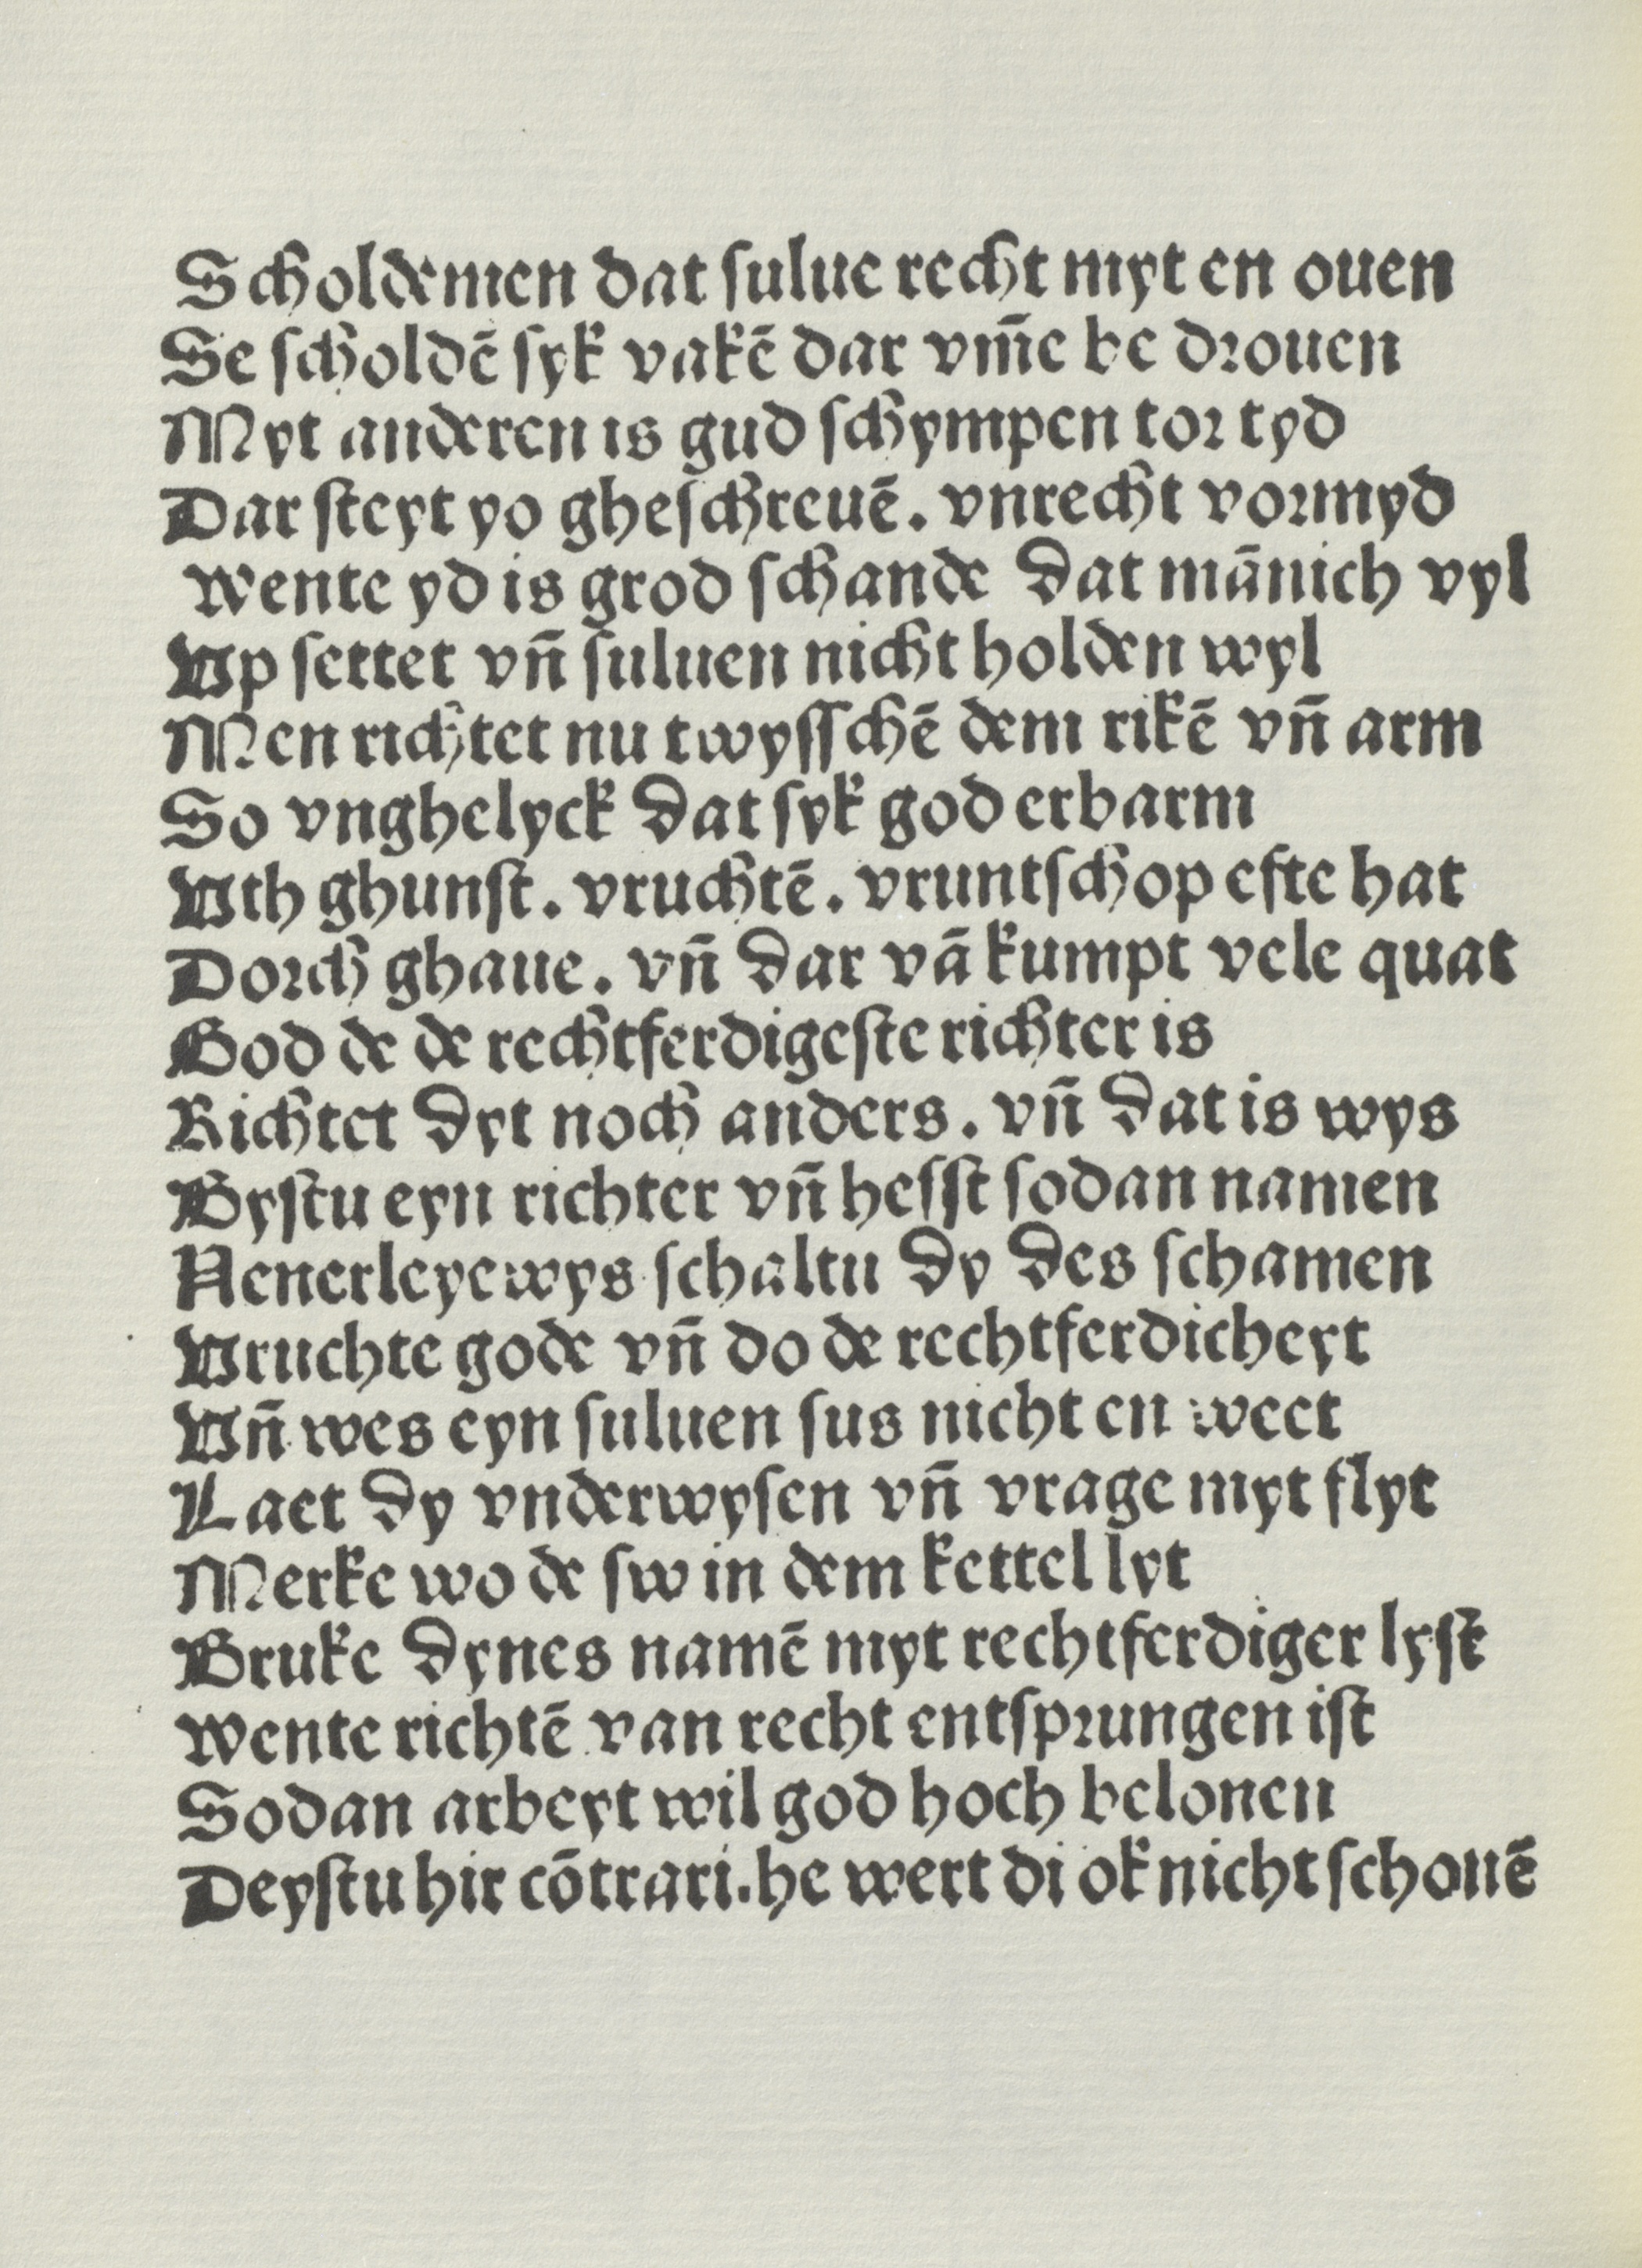 Scholdemen dat sulue recht myt en ouen
Se scholdē syk vakē dar vm̄e be drouen
Myt anderen is gud schympen tor tyd
Dar steyt yo gheschreuē. vnrecht vormyd
wente yd is grod schande dat mānich vyl
Vp settet vn̄ suluen nicht holden wyl
Men richtet nu twysschē dem rikē vn̄ arm
So vnghelyck dat syk god erbarm
Vth ghunst. vruchtē. vruntschop efte hat
Dorch ghaue. vn̄ dar vā kumpt vele quat
God de de rechtferdigeste richter is
Richtet dyt noch anders. vn̄ dat is wys
Bystu eyn richter vn̄ hesst sodan namen
Nenerleyewys schaltu dy des schamen
Vruchte gode vn̄ do de rechtferdicheyt
Vn̄ wes eyn suluen sus nicht en weet
Laet dy vnderwysen vn̄ vrage myt flyt
Merke wo de sw in dem kettel lyt
Bruke dynes namē myt rechtferdiger lyst
wente richtē van recht entsprungen ist
Sodan arbeyt wil god hoch belonen
Deystu hir cōtrari. he wert di ok nicht schonē